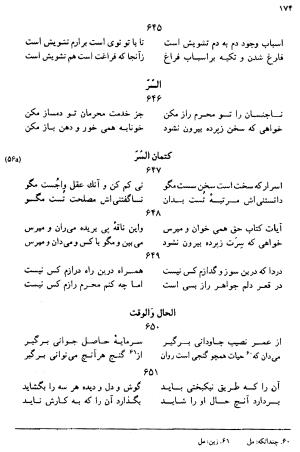 ۱۷۴
۶۴۵
اسباب وجود دم به دم تشویش است تا با تو نوی است برارم تشویش است
فارغ شدن و تکیه براسباب فراغ زآنجا که فراغت است هم تشویش است
السّرّ
۶۴۶
ناجنسان را تو محرم راز مکن جز خدمت محرمان تو دمساز مکن
خواهی که سخن زپرده بیرون نشود خونابه همی خور و دهن باز مکن
کتمان السّرّ
(56a)
۶۴۷
اسرار که سخت است سخن سست مگو نی کم کن و آنك عقل واجُست مگو
دانستنی‌اش مرتبهٔ تست بدان ناگفتنی‌اش مصلحت تست مگو
۶۴۸
آیات کتاب حق همی خوان و مپرس واین ناقهٔ پی بریده می‌ران و مپرس
خواهی که سِرَت زپرده بیرون نشود می بین و مگو با کس و می‌دان و مپرس
۶۴۹
دردا که درین سوز و گدازم کس نیست همراه درین راه درازم کس نیست
در قعر دلم جواهر راز بسی است اما چه کنم محرم رازم کس نیست
الحال والوقت
۶۵۰
از عمر نصیب جاودانی برگیر سرمایهٔ حاصل جوانی برگیر
می‌دان که۶۰ حیات همچو گنجی است روان از۶۱ گنج هرآنچ می‌توانی برگیر
۶۵۱
آن را که طریق نیکبختی باید گوش و دل و دیده هر سه را بگشاید
بردارد آنچ حال او را شاید بگذارد آن را که به کارش ناید
۶۰. چندانکه: مل ۶۱. زین: مل